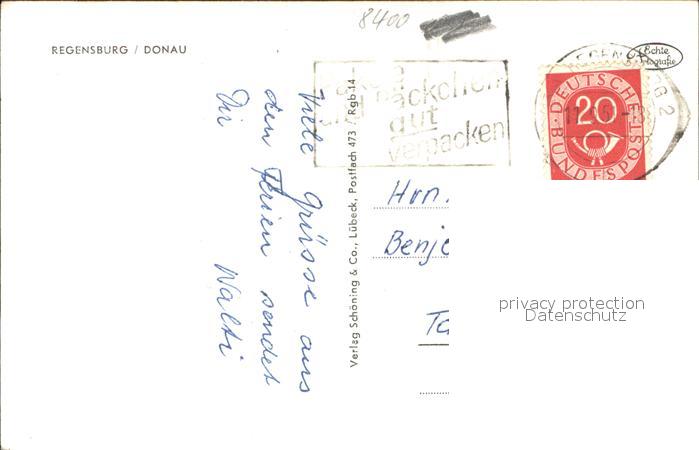 8400
REGENSBURG / DONAU
Echte
und Päckchen
gut
verpacken
REGENSBURG 2
DEUTSCHE
20
BUNDESPOST
Viele Grüsse aus
den Ferien sendet
Dir Walti
Verlag Schöning & Co., Lübeck, Postfach 473 / Rgb 14
Hrn.
Benje
Ta
privacy protection
Datenschutz